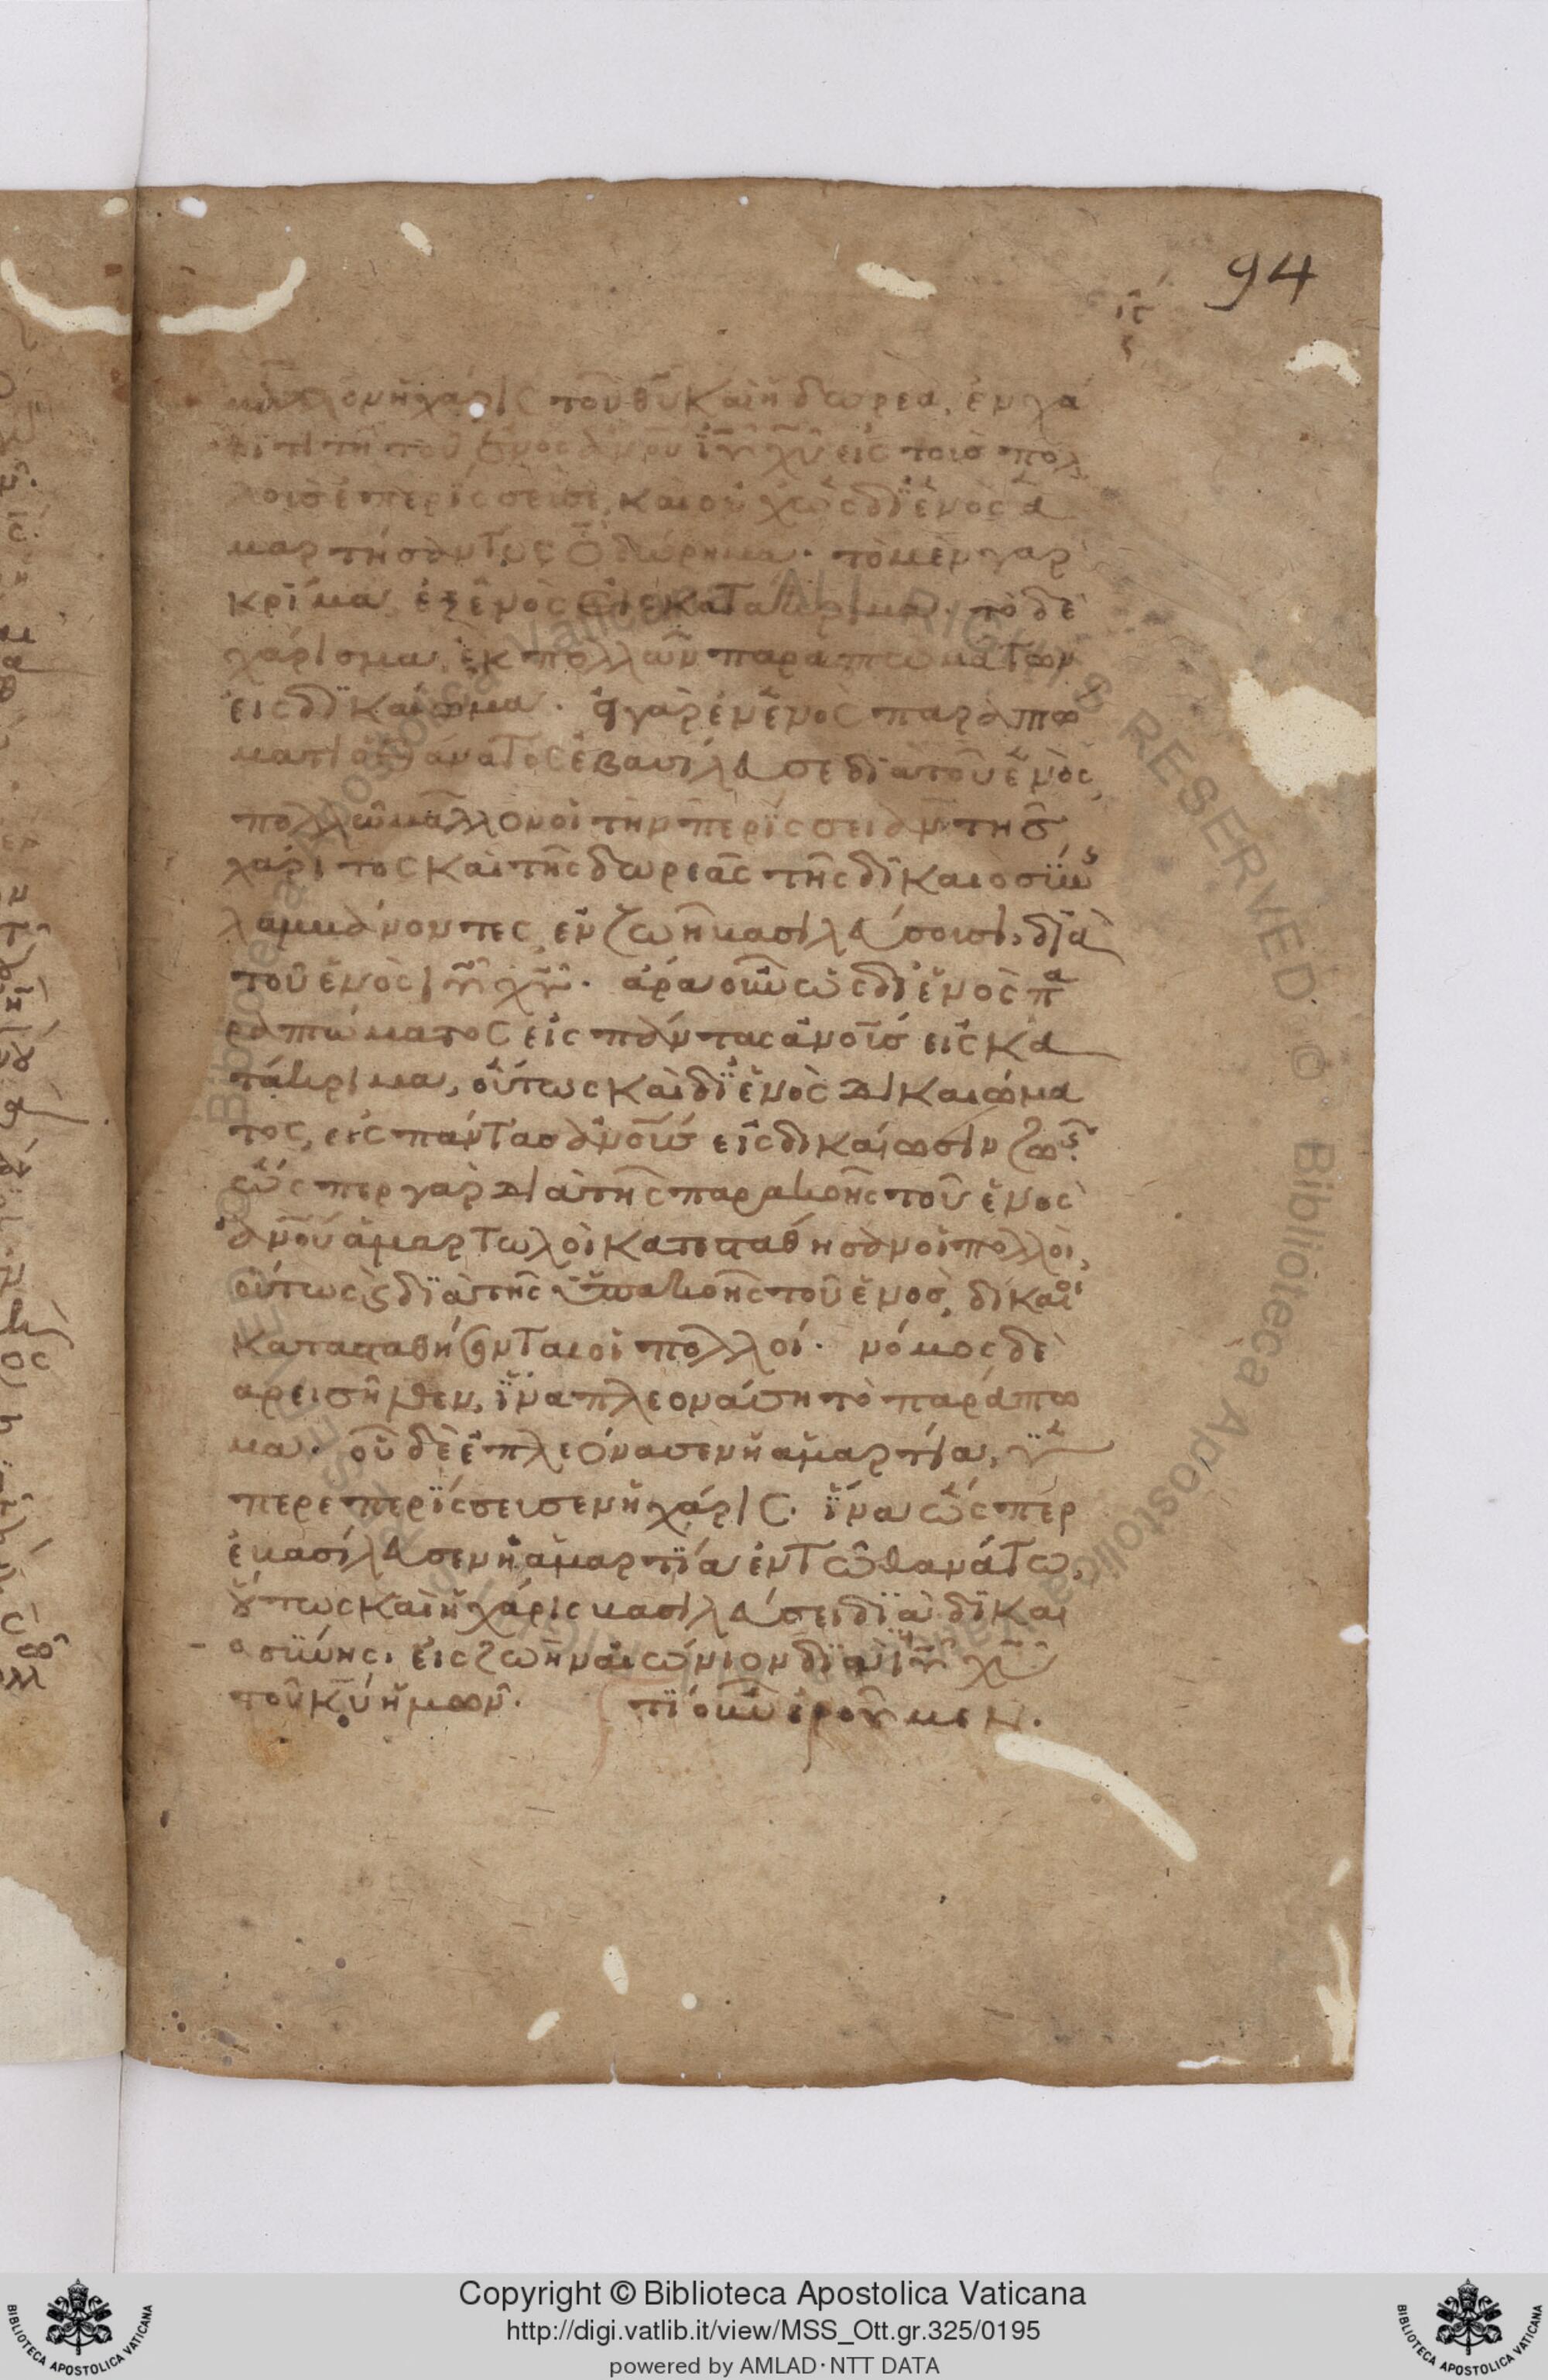 94
ιϛ
μᾶλλον ἡ χάρις τοῦ θυ καὶ ἡ δωρεὰ, ἐν χά
ριτι τῆ τοῦ ἑνὸς ἀνου ιυ χυ εἰς τοὺσ πολ
λοὺσ ἐπερίσσεισε, καὶ οὐχ ὡς δι ἑνὸς ἁ
μαρτήσαντος τὸ δώρημα. τὸ μὲν γὰρ
κρίμα ἐξ ἑνὸς εἰς κατάκριμα. τὸ δὲ
χάρισμα, ἐκ πολλῶν παραπτωμάτων
εἰς δικαίωμα. εἰ γὰρ ἐν ἑνὸς παραπτω
ματι ὁ θάνατος ἐβασίλευσε διὰ τοῦ ἑνὸς,
πολλῶ μᾶλλον οἱ τὴν περισσείαν τῆσ
χάριτος καὶ τῆς δωρεᾶς τῆς δικαιοσύνης
λαμβάνοντες, ἐν ζωῆ βασιλεύσουσι, διὰ
τοῦ ἑνὸς ιυ χυ. ἄρα οὖν ὡς δι ἑνὸς πα
ραπτώματος εἰς πάντας ἀνουσ εἰς κα
τάκριμα, οὕτως καὶ δι ἑνὸς δικαιώμα
τος, εἰς πάντασ ἀνουσ εἰς δικαίωσιν ζωῆς.
ὥς περ γὰρ διὰ τῆς παρακοῆς τοῦ ἑνὸς
ἀνου ἁμαρτωλοὶ κατεστάθησαν οἱ πολλοὶ,
οὕτως ϗ διὰ τῆς ὑπακοῆς τοῦ ἑνὸσ, δίκαιοι
κατασταθήσονται οἱ πολλοί. νόμος δὲ
παρεισῆλθεν, ἵνα πλεονάση τὸ παράπτω
μα. οὗ δὲ ἐπλεόνασεν ἡ ἁμαρτία, ὑ
περεπερίσσεισεν ἡ χάρις. ἵνα ὥς περ
ἐβασίλευσεν ἡ ἁμαρτία ἐν τῶ θανάτω,
οὕτως καὶ ἡ χάρις βασιλεύσει διὰ δικαι
οσύνης, εἰς ζωὴν αἰώνιον διὰ ιυ χυ
τοῦ κυ ἡμῶν. τί οὖν ἐροῦμεν.
Copyright © Biblioteca Apostolica Vaticana
http://digi.vatlib.it/view/MSS_Ott.gr.325/0195
powered by AMLAD·NTT DATA